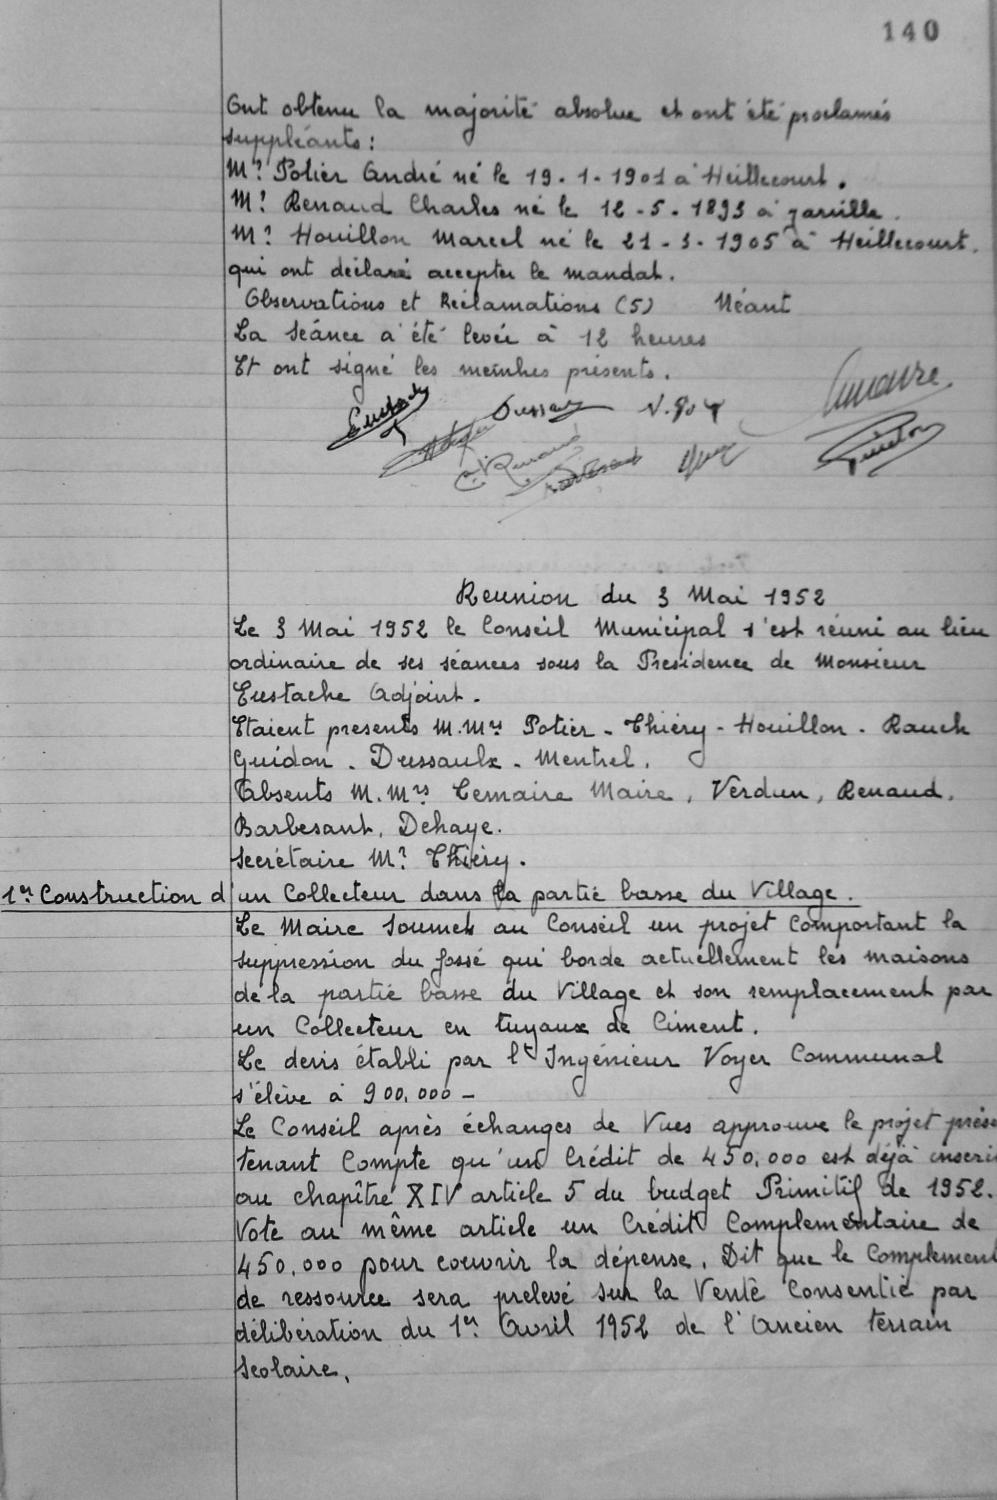 140
Ont obtenu la majorité absolue et ont été proclamés
suppléants :
Mr Potier André né le 19-1-1901 à Heillecourt.
Mr Renaud Charles né le 12-5-1893 à Jarville.
Mr Houillon Marcel né le 21-3-1905 à Heillecourt.
qui ont déclaré accepter le mandat.
Observations et Réclamations (5) Néant
La séance a été levée à 12 heures
Et ont signé les membres présents.
Reunion du 3 Mai 1952
Le 3 Mai 1952 le Conseil Municipal s'est réuni au lieu
ordinaire de ses séances sous la Presidence de Monsieur
Eustache Adjoint.
Etaient presents M.Mrs Potier - Thiéry - Houillon - Rauch
Guidon - Dussaulx - Mentrel.
Absents M.Mrs Lemaire Maire, Verdun, Renaud,
Barbesant, Dehaye.
Secrétaire Mr Thiéry.
1er Construction d'un Collecteur dans la partie basse du Village.
Le Maire soumet au Conseil un projet comportant la
suppression du fossé qui borde actuellement les maisons
de la partie basse du Village et son remplacement par
un Collecteur en tuyaux de Ciment.
Le devis établi par lt Ingénieur Voyer Communal
s'élève à 900.000 -
Le Conseil après échanges de Vues approuve le projet prése
tenant Compte qu'un Crédit de 450.000 est déjà inscri
au chapître XIV article 5 du budget Primitif de 1952.
Vote au même article un Crédit Complementaire de
450.000 pour couvrir la dépense. Dit que le Complement
de ressource sera prelevé sur la Vente Consentie par
délibération du 1er Avril 1952 de l'Ancien terrain
Scolaire.